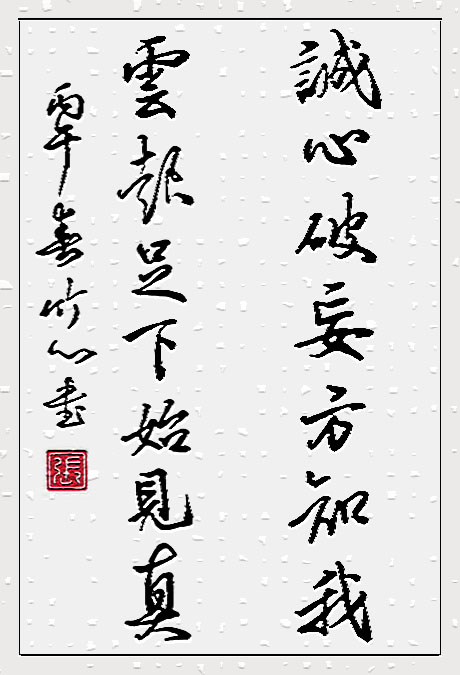 誠心破妄方知我
雲足下始見真
丙午春竹心書
張